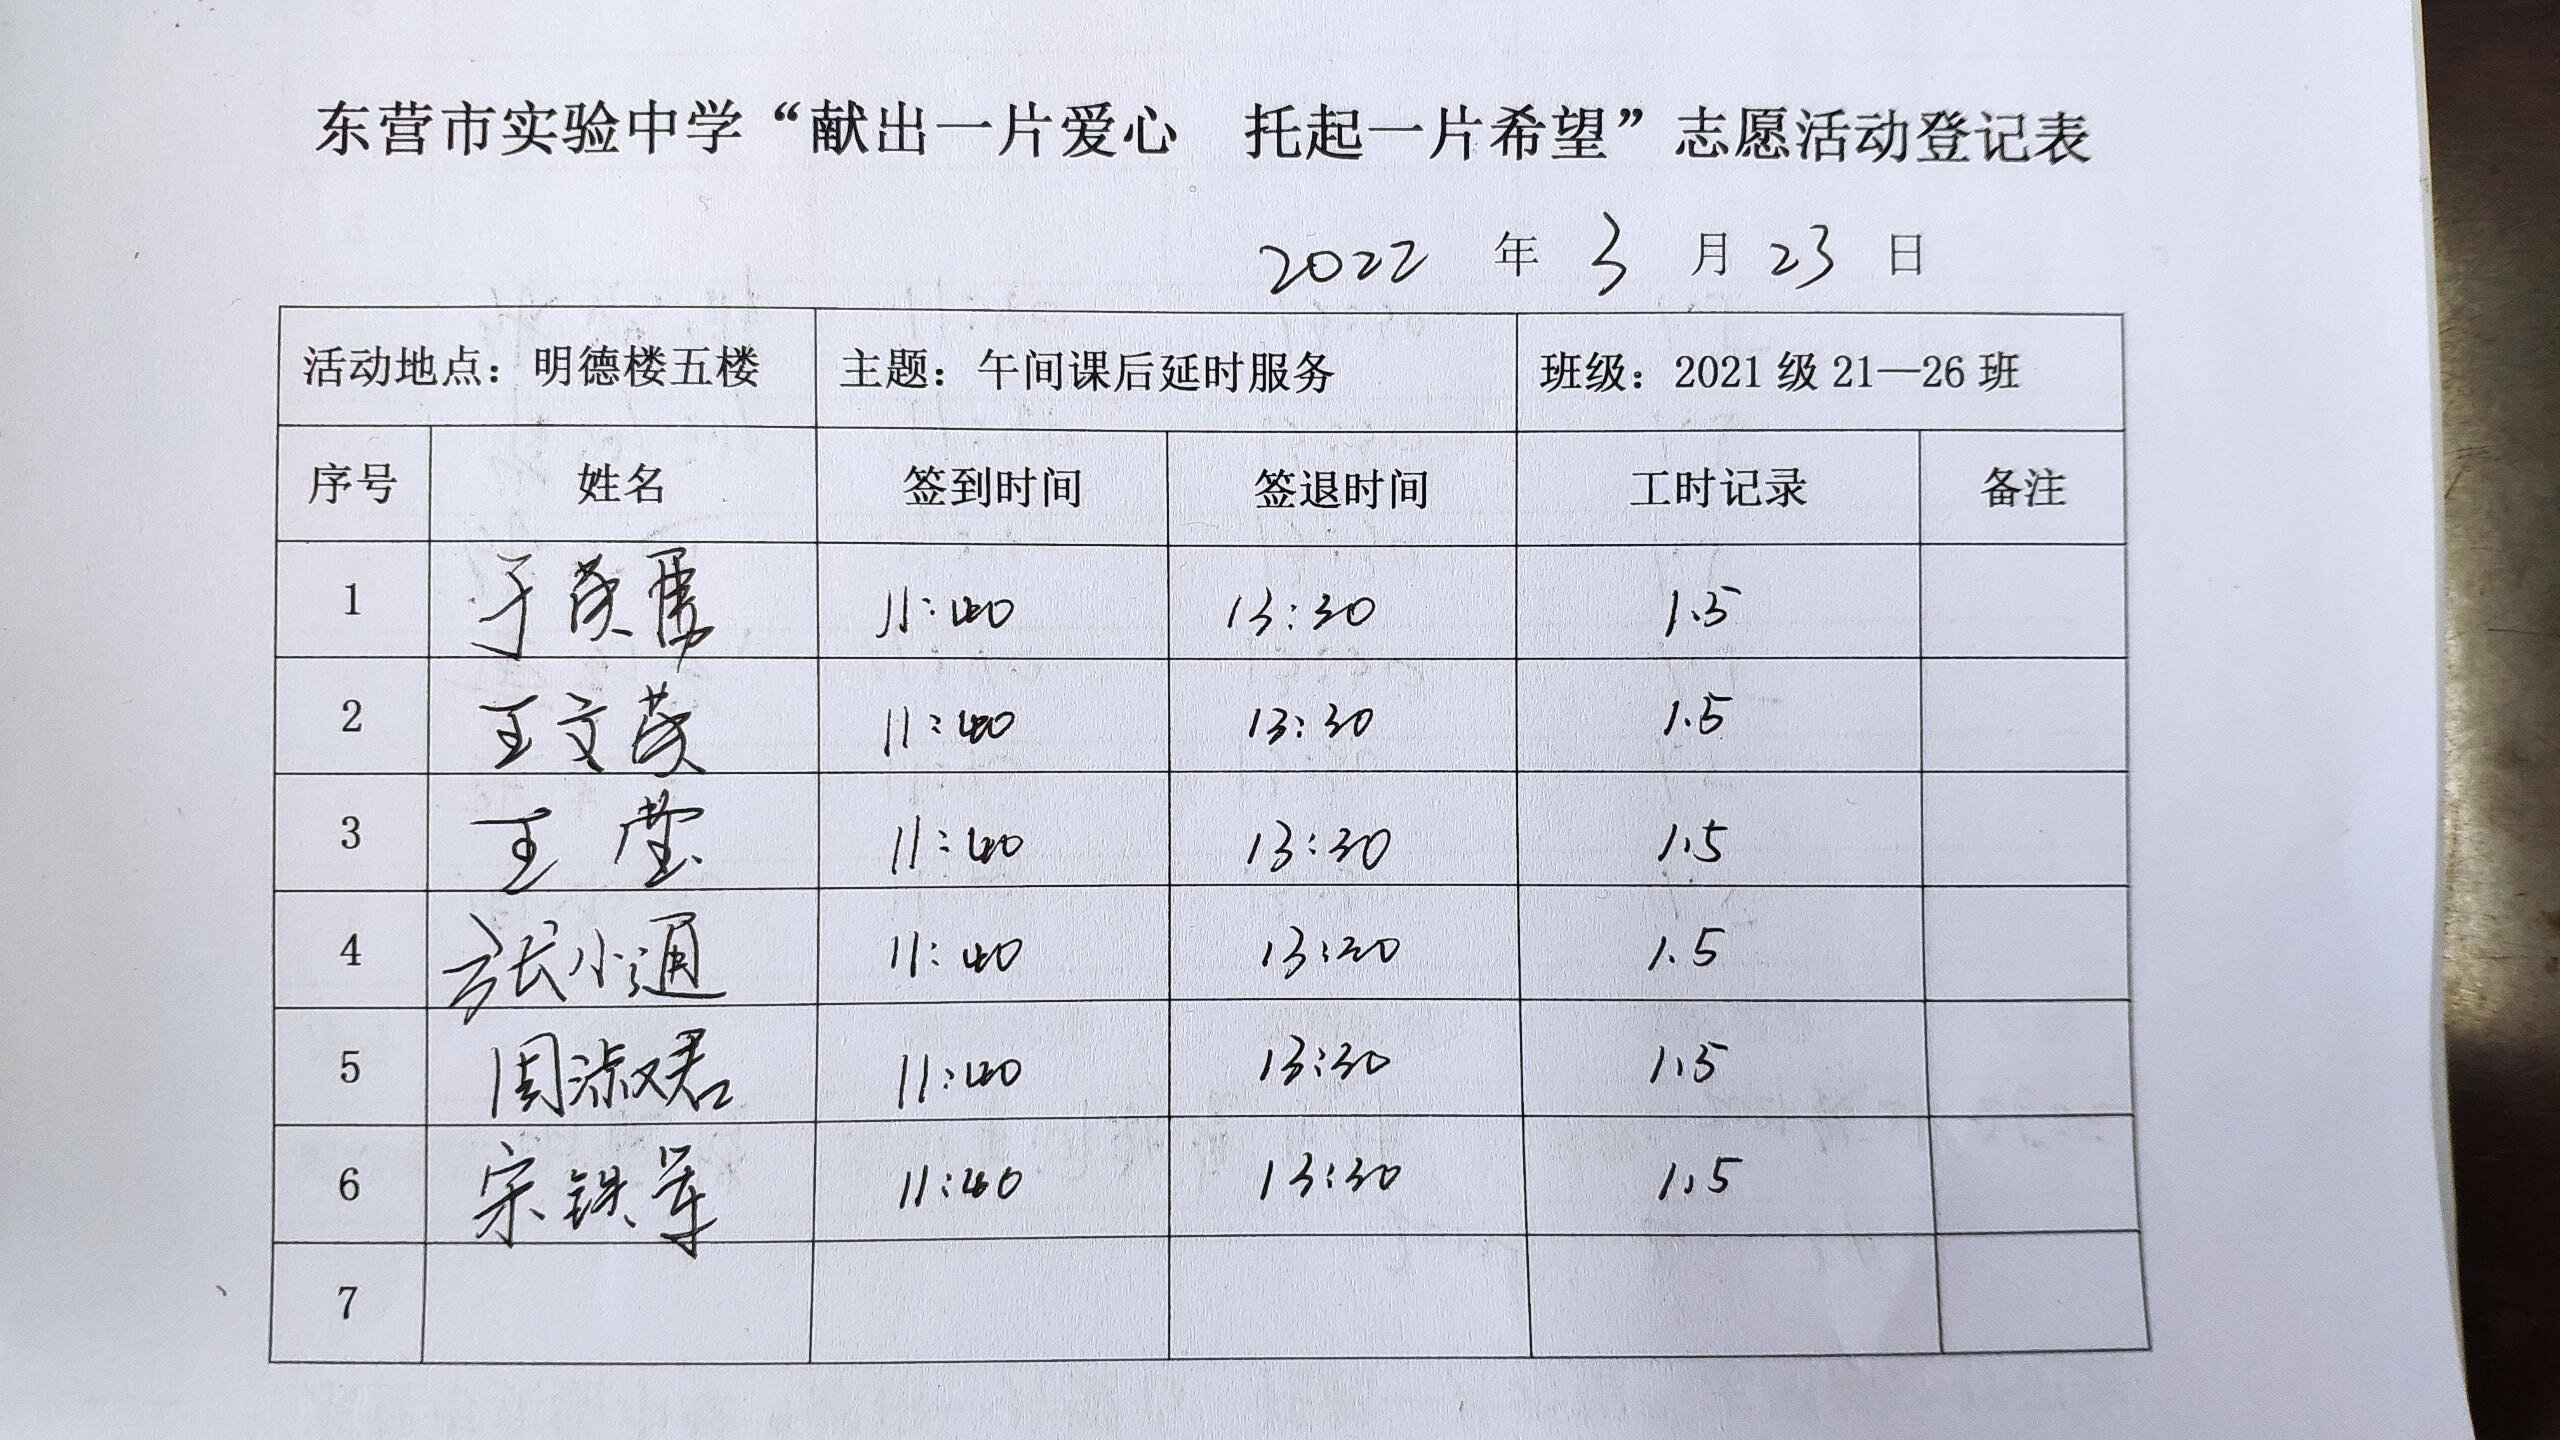 东营市实验中学“献出一片爱心 托起一片希望”志愿活动登记表
2022 年 3 月 23 日
活动地点：明德楼五楼 主题：午间课后延时服务 班级：2021级21—26班
序号 姓名 签到时间 签退时间 工时记录 备注
1 于英 11:40 13:30 1.5
2 王文英 11:40 13:30 1.5
3 王莹 11:40 13:30 1.5
4 张小通 11:40 13:30 1.5
5 周淑君 11:40 13:30 1.5
6 宋铁军 11:40 13:30 1.5
7